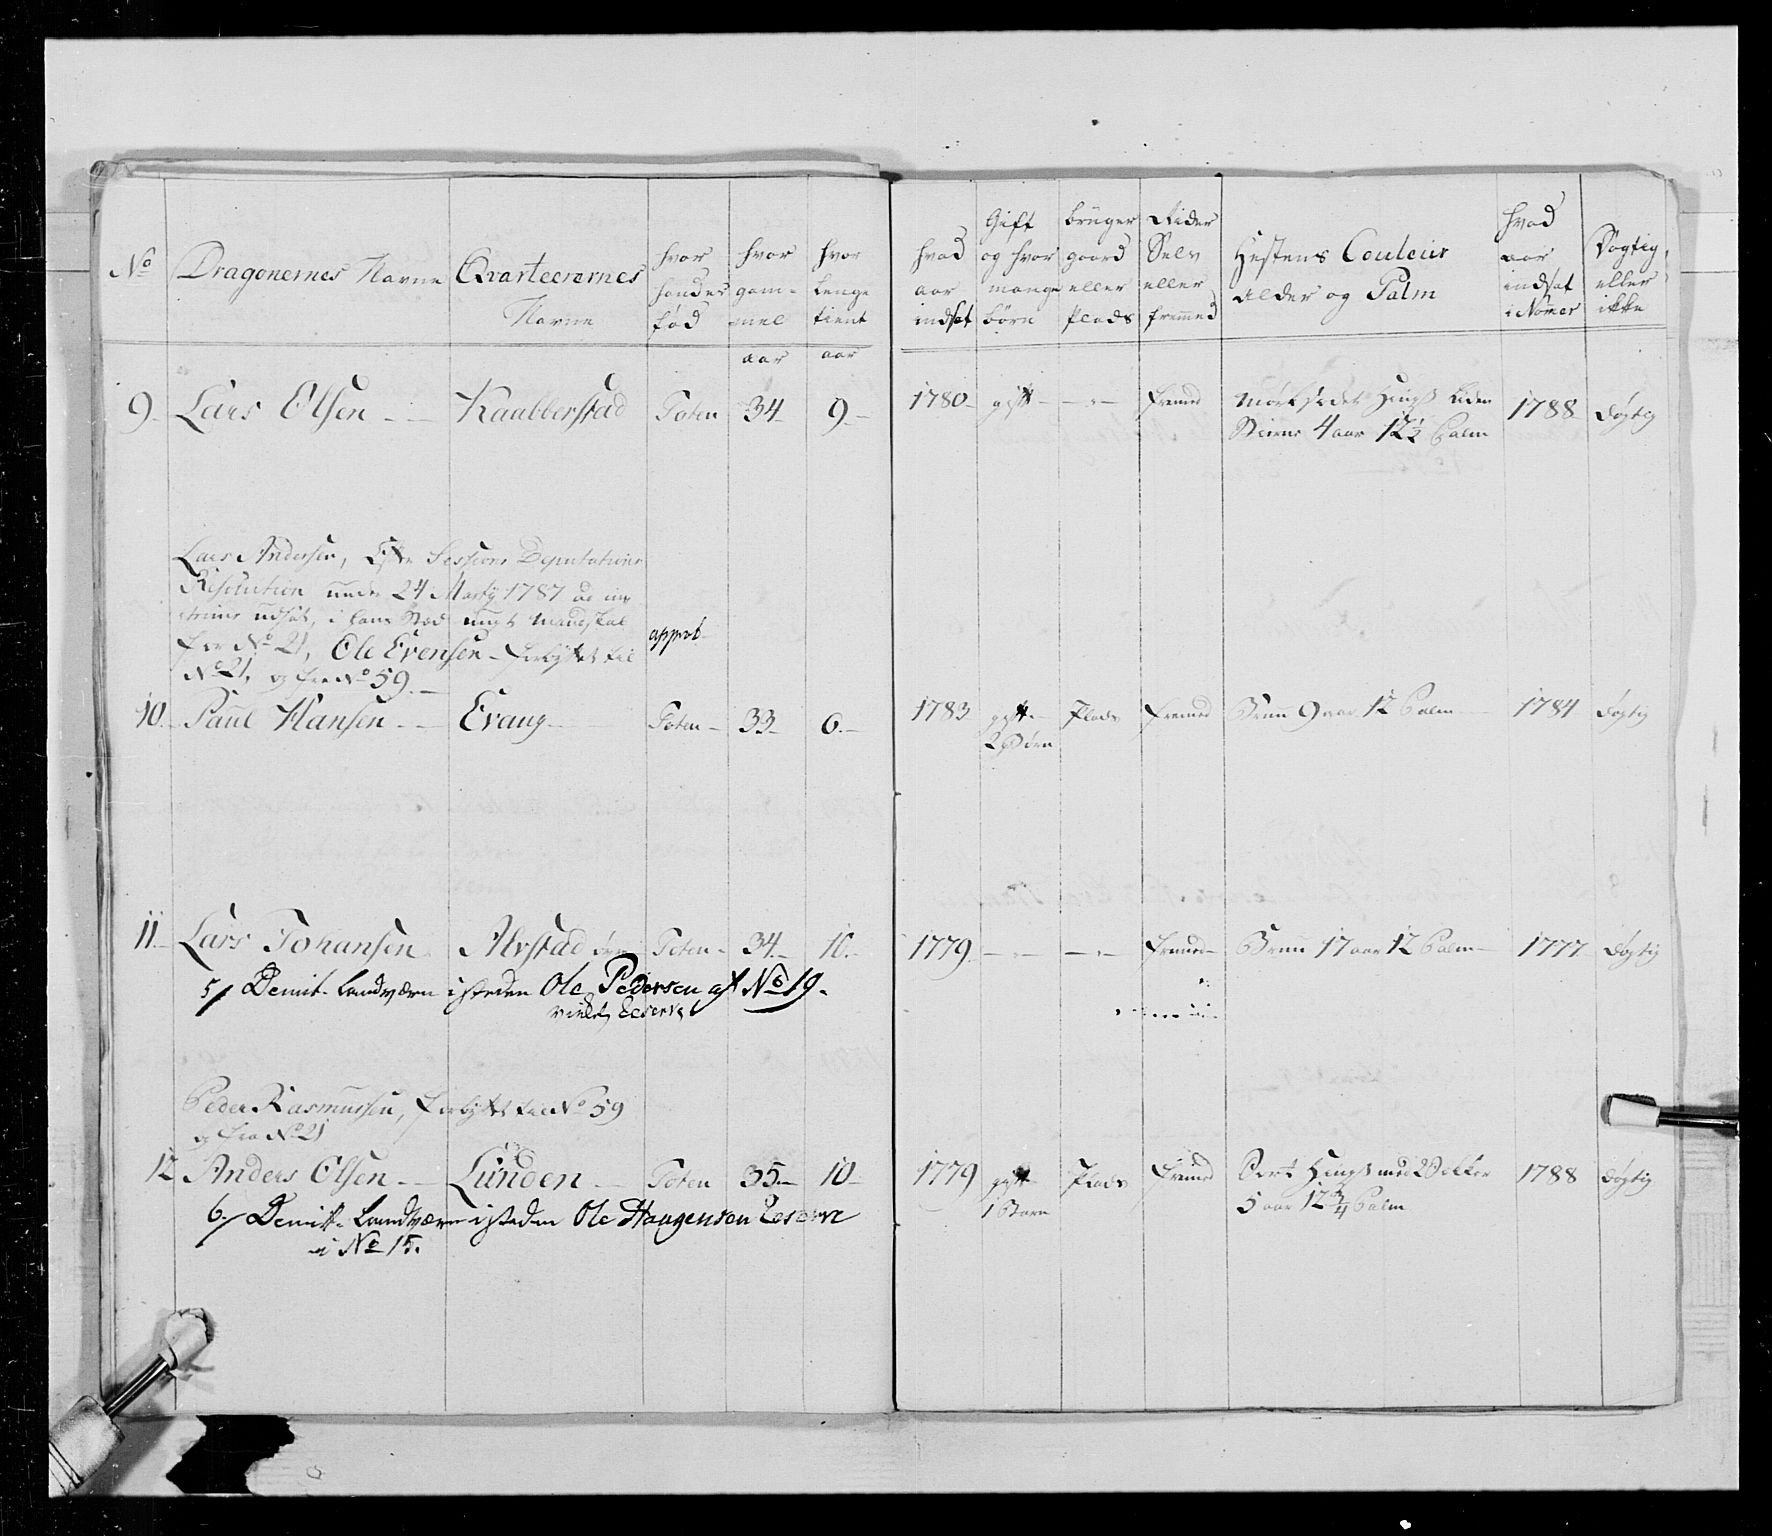 No Dragonernes Navne Qvarteerernes Navne hvor hånd er fød hvor gam- mel hvor lenge tient
aar aar
9. Lars Olsen Kaalberstad Toten 34 9
Lars Andersen, Efter Sessions Deputations
Resolution under 24 Marty 1787
udsat, i hans Sted
fra No 21, Ole Evensen forbyttet til
No 21, og fra No 59.
approb.
10. Paul Hansen Evang Toten 33 6.
11. Lars Johansen Alvstad Toten 34. 10.
5/ Demit. Landværn isteden Ole Pedersen af No 19.
Reserve
Peder Rasmussen, forbyttet til No 59
og fra No 21
12 Anders Olsen Lunden Toten 35 10
6/ Demitt. Landværn isteden Ole Haagensen Reserve
i No 15.
hvad aar indsat Gift og hvor mange børn bruger gaard eller Plads Rider Selv eller fremmed Hestens Couleur alder og Palm hvad aar indsat i Nomer Dygtig eller ikke
1780 gift fremed Mørk Hingst liden
Stierne 4 aar 12 1/2 Palm 1788 dygtig
1783 gift Plads fremed Bruun 9 aar 12 Palm 1784 dygtig
2 Børn
1779 fremed Bruun 17 aar 12 Palm 1777 dygtig
1779 gift Plads fremed Sort Hingst med
1 Barn 5 aar 12 3/4 Palm 1788 dygtig